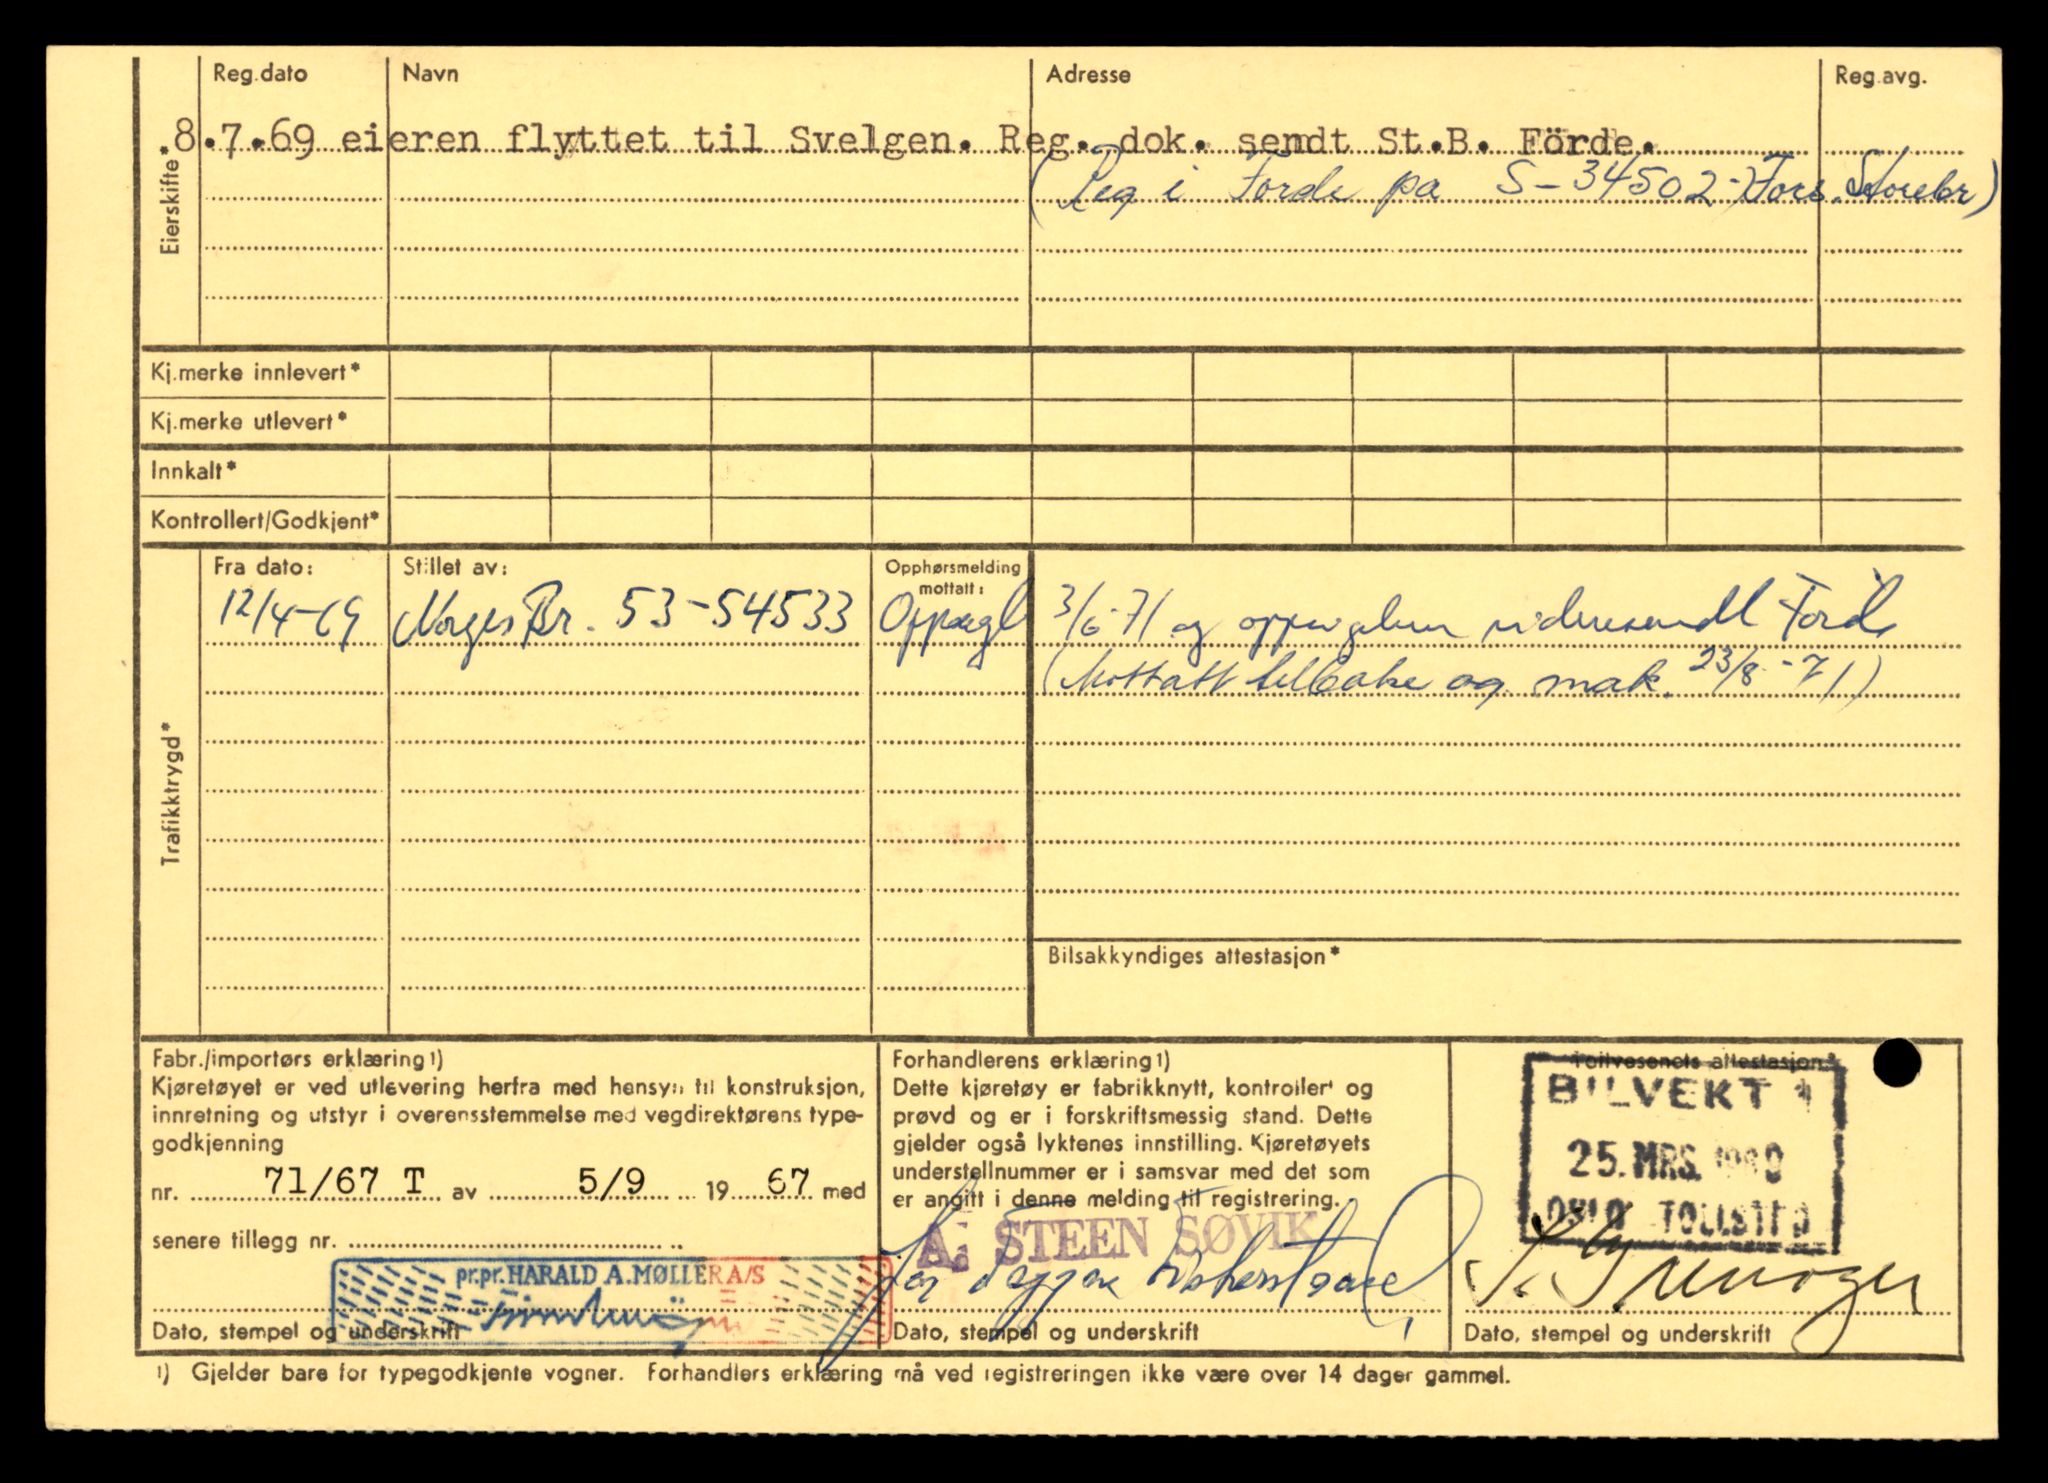 Reg.dato Navn Adresse Reg.avg.
8.7.69 eieren flyttet til Svelgen. Reg. dok. sendt St.B. Förde.
(Reg i Førde på S-34502-) Fors. Storebr)
Eierskifte*
Kj.merke innlevert*
Kj.merke utlevert*
Innkalt*
Kontrollert/Godkjent*
Fra dato: Stillet av: Opphørsmelding mottatt:
12/4-69 Norges Br. 53-54533 Oppsagt 3/6-71 og oppsigelsen videresendt Førde
(Mottatt tilbake og mak. 23/8-71)
Trafikktrygd*
Bilsakkyndiges attestasjon*
Fabr./importørs erklæring 1)
Kjøretøyet er ved utlevering herfra med hensyn til konstruksjon,
innretning og utstyr i overensstemmelse med vegdirektørens type-
godkjenning
nr. 71/67 T av 5/9 19 67 med
senere tillegg nr.
pr.pr. HARALD A. MØLLER A/S
Dato, stempel og underskrift
Forhandlerens erklæring 1)
Dette kjøretøy er fabrikknytt, kontrollert og
prøvd og er i forskriftsmessig stand. Dette
gjelder også lyktenes innstilling. Kjøretøyets
understellnummer er i samsvar med det som
er angitt i denne melding til registrering.
A. STEEN SØVIK
Dato, stempel og underskrift
Tollvesenets attestasjon*
BILVEKT 1
25. MRS.
OSLO TOLLSTED
Dato, stempel og underskrift
1) Gjelder bare for typegodkjente vogner. Forhandlers erklæring må ved registreringen ikke være over 14 dager gammel.